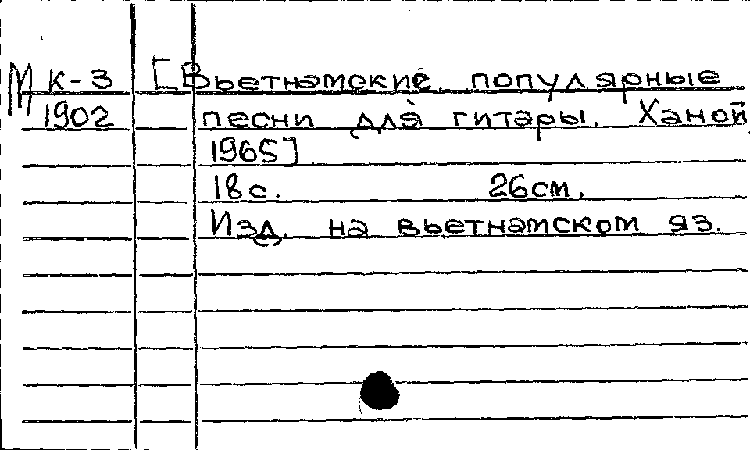 М К-3 [Вьетнамские популярные
1902 песни для гитары. Ханой,
1965]
18с. 26см.
Изд. на вьетнамском яз.